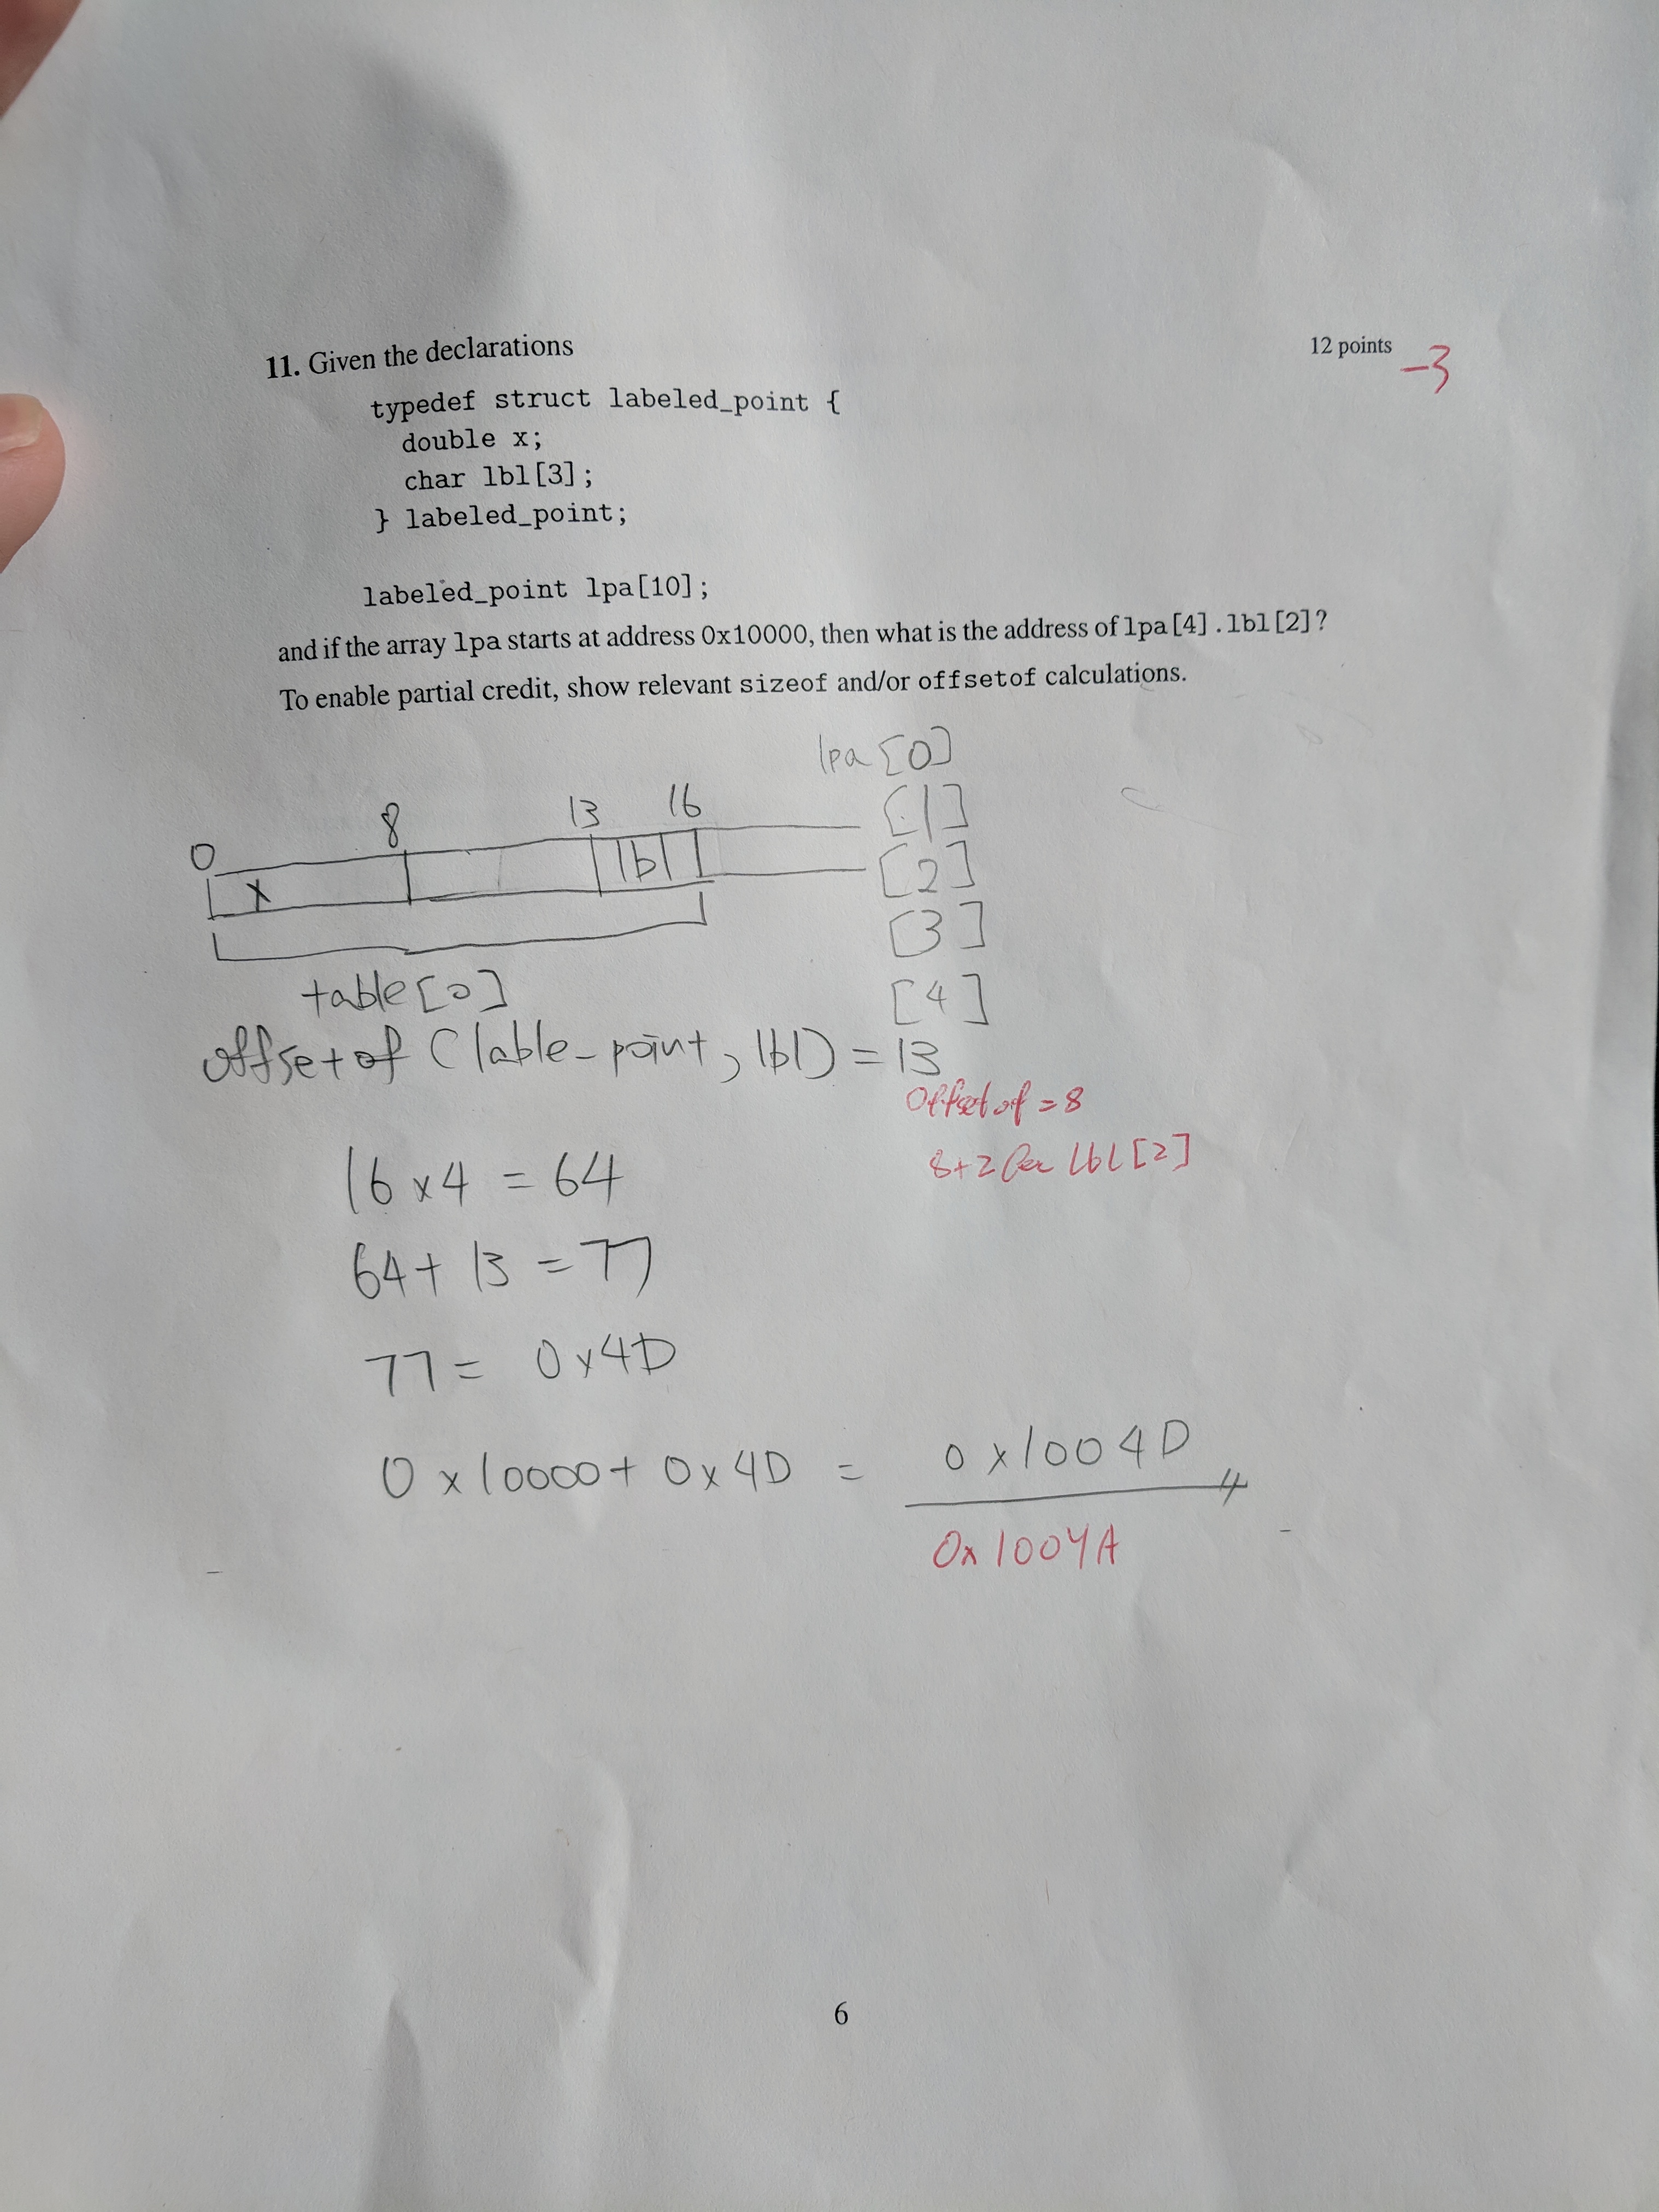 11. Given the declarations
12 points
-3
typedef struct labeled_point {
double x;
char lbl[3];
} labeled_point;
labeled_point lpa[10];
and if the array lpa starts at address 0x10000, then what is the address of lpa[4].lbl[2]?
To enable partial credit, show relevant sizeof and/or offsetof calculations.
lpa [0]
[1]
[2]
[3]
[4]
0 8 13 16
x lbl
table[0]
offset of (lable-point, lbl) = 13
Offset of = 8
8+2 for lbl[2]
16 x 4 = 64
64 + 13 = 77
77 = 0x4D
0x10000 + 0x4D = 0x1004D
0x1004A
6